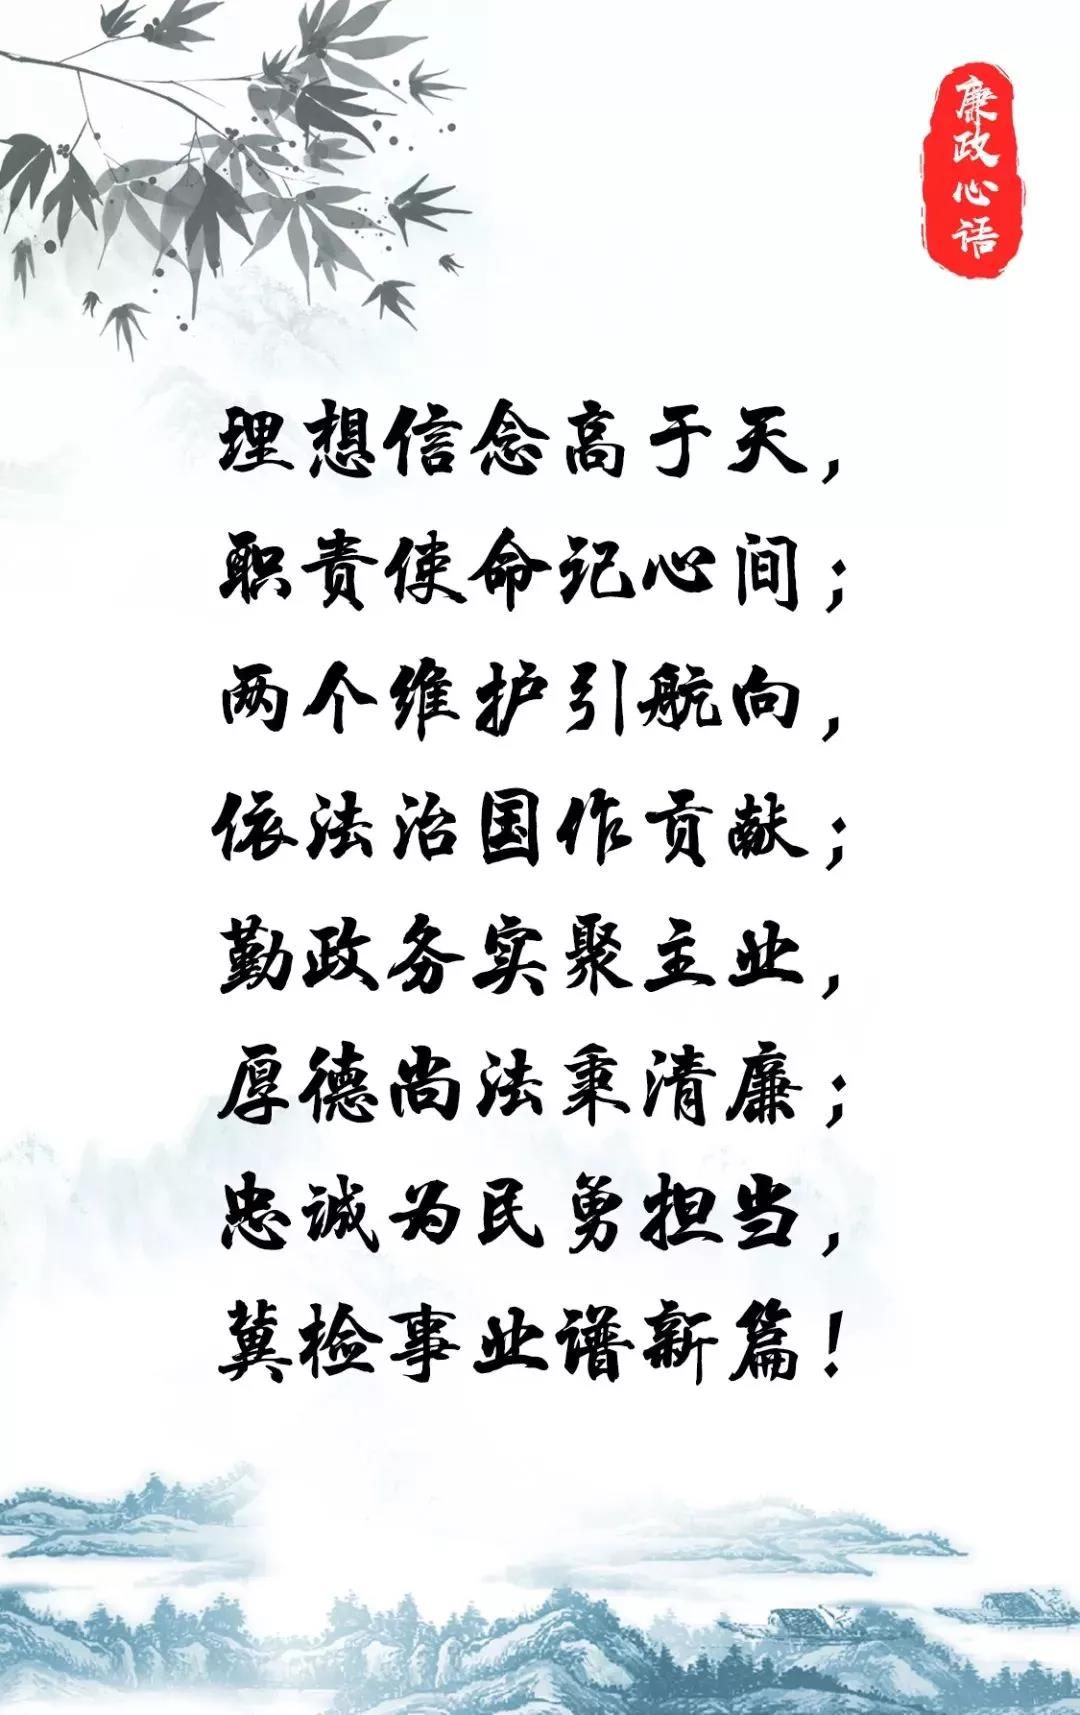 廉政心语
理想信念高于天，
职责使命记心间；
两个维护引航向，
依法治国作贡献；
勤政务实聚主业，
厚德尚法秉清廉；
忠诚为民勇担当，
冀检事业谱新篇！